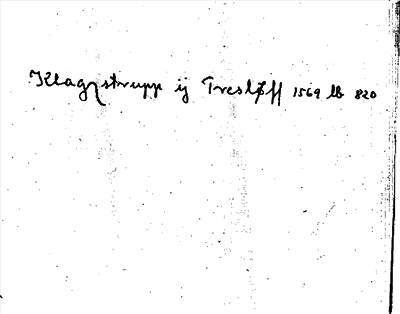 Klagzstrupp ij Tresløff 1569 lb 820